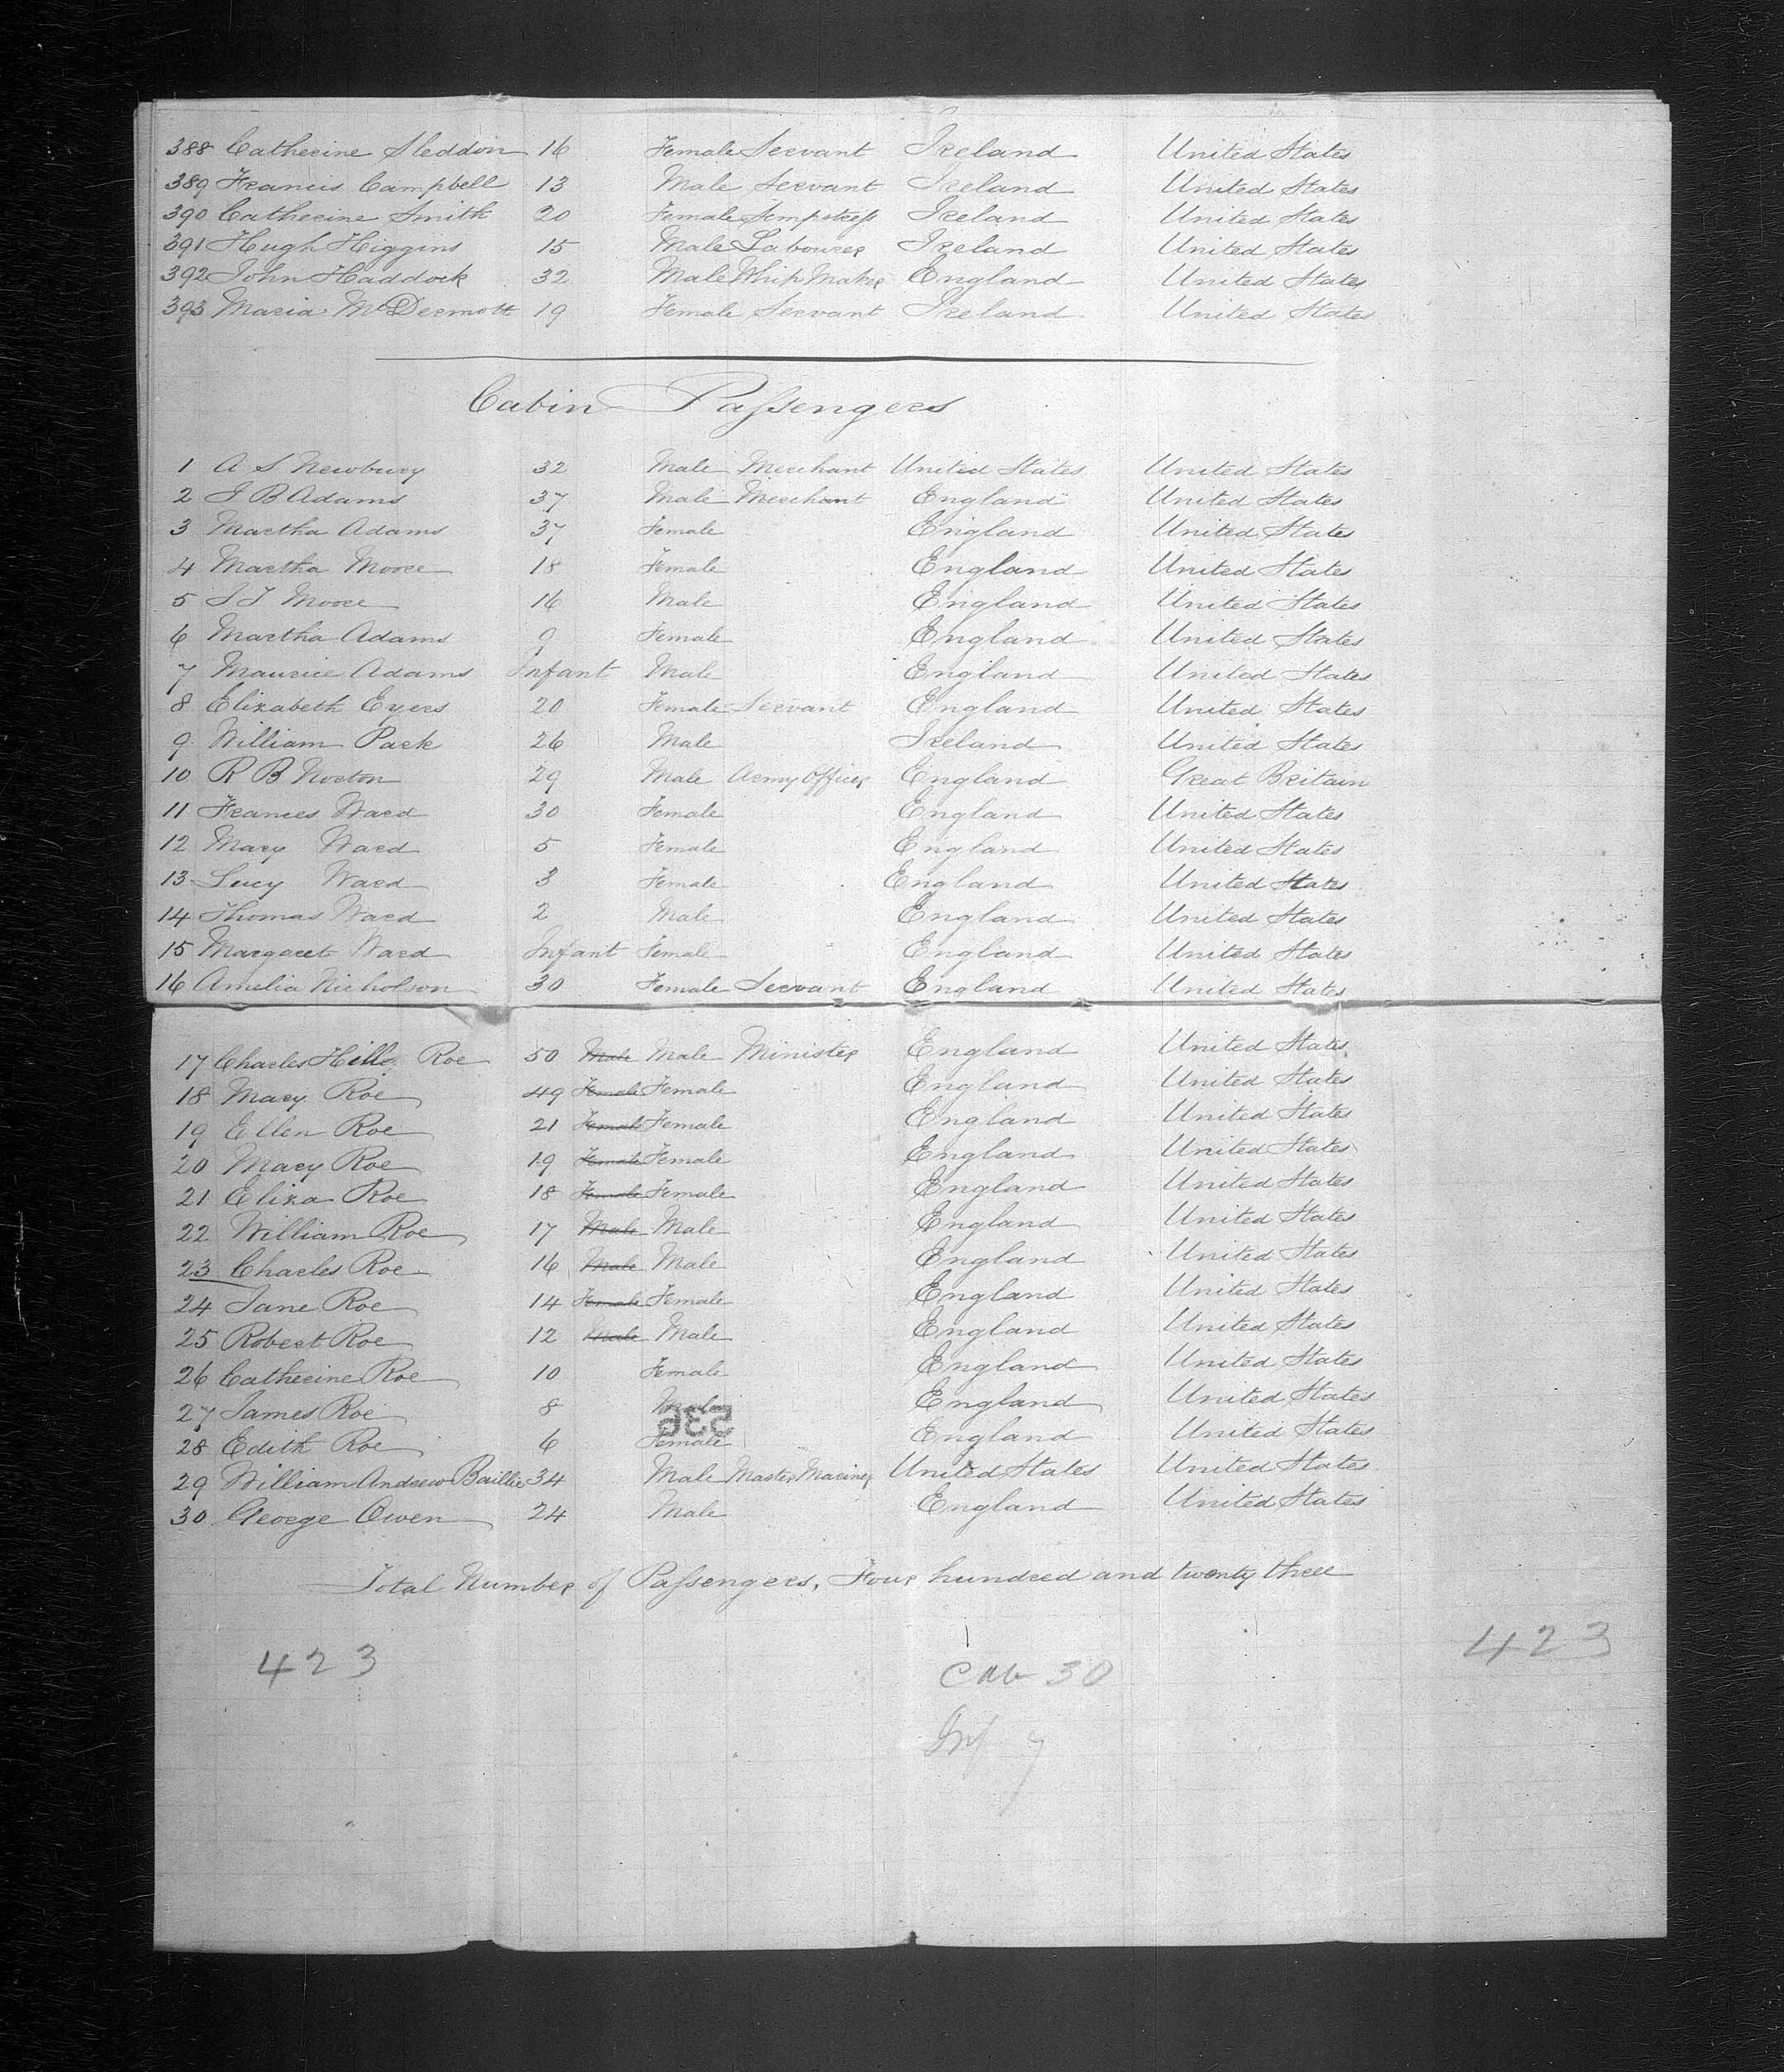 388 Catherine Sleddon 16 Female Servant Ireland United States
389 Francis Campbell 13 Male Servant Ireland United States
390 Catherine Smith 20 Female Sempstress Ireland United States
391 Hugh Higgins 15 Male Labourer Ireland United States
392 John Haddock 32 Male Whip Maker England United States
393 Maria McDermott 19 Female Servant Ireland United States
Cabin Passengers
1 A S Newbury 32 Male Merchant United States United States
2 J B Adams 37 Male Merchant England United States
3 Martha Adams 37 Female England United States
4 Martha Moore 18 Female England United States
5 Moore 16 Male England United States
6 Martha Adams 9 Female England United States
7 Maurice Adams Infant Male England United States
8 Elizabeth Eyers 20 Female Servant England United States
9 William Park 26 Male Ireland United States
10 R B Norton 29 Male Army Officer England Great Britain
11 Frances Ward 30 Female England United States
12 Mary Ward 5 Female England United States
13 Lucy Ward 3 Female England United States
14 Thomas Ward 2 Male England United States
15 Margaret Ward Infant Female England United States
16 Amelia Nicholson 30 Female Servant England United States
17 Charles Hills Roe 50 Male Male Minister England United States
18 Mary Roe 49 Female Female England United States
19 Ellen Roe 21 Female Female England United States
20 Mary Roe 19 Female Female England United States
21 Eliza Roe 18 Female Female England United States
22 William Roe 17 Male Male England United States
23 Charles Roe 16 Male Male England United States
24 Jane Roe 14 Female Female England United States
25 Robert Roe 12 Male Male England United States
26 Catherine Roe 10 Female England United States
27 James Roe 8 Male England United States
28 Edith Roe 6 Female England United States
29 William Andrew Baillie 34 Male Master Mariner United States United States
30 George Owen 24 Male England United States
Total Number of Passengers, Four hundred and twenty three
423
423
Cab 30
Inf 7